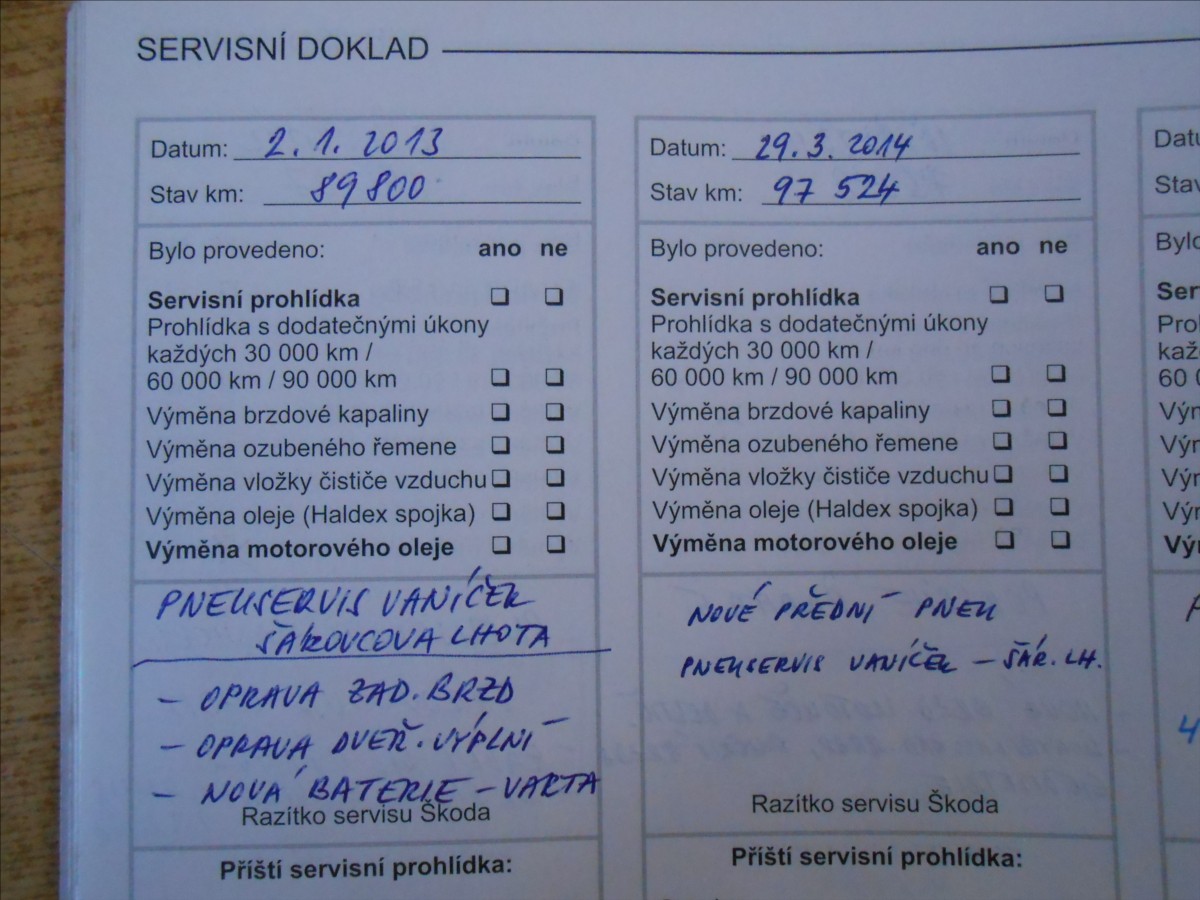 SERVISNÍ DOKLAD
Datum: 2. 1. 2013
Stav km: 89 800
Bylo provedeno: ano ne
Servisní prohlídka
Prohlídka s dodatečnými úkony
každých 30 000 km /
60 000 km / 90 000 km
Výměna brzdové kapaliny
Výměna ozubeného řemene
Výměna vložky čističe vzduchu
Výměna oleje (Haldex spojka)
Výměna motorového oleje
PNEUSERVIS VANÍČEK
ŠÁROVCOVA LHOTA
- OPRAVA ZAD. BRZD
- OPRAVA DVEŘ. VÝPLNÍ
- NOVÁ BATERIE - VARTA
Razítko servisu Škoda
Příští servisní prohlídka:
Datum: 29. 3. 2014
Stav km: 97 524
Bylo provedeno: ano ne
Servisní prohlídka
Prohlídka s dodatečnými úkony
každých 30 000 km /
60 000 km / 90 000 km
Výměna brzdové kapaliny
Výměna ozubeného řemene
Výměna vložky čističe vzduchu
Výměna oleje (Haldex spojka)
Výměna motorového oleje
NOVÉ PŘEDNÍ PNEU
PNEUSERVIS VANÍČEK - ŠÁR. LH.
Razítko servisu Škoda
Příští servisní prohlídka: